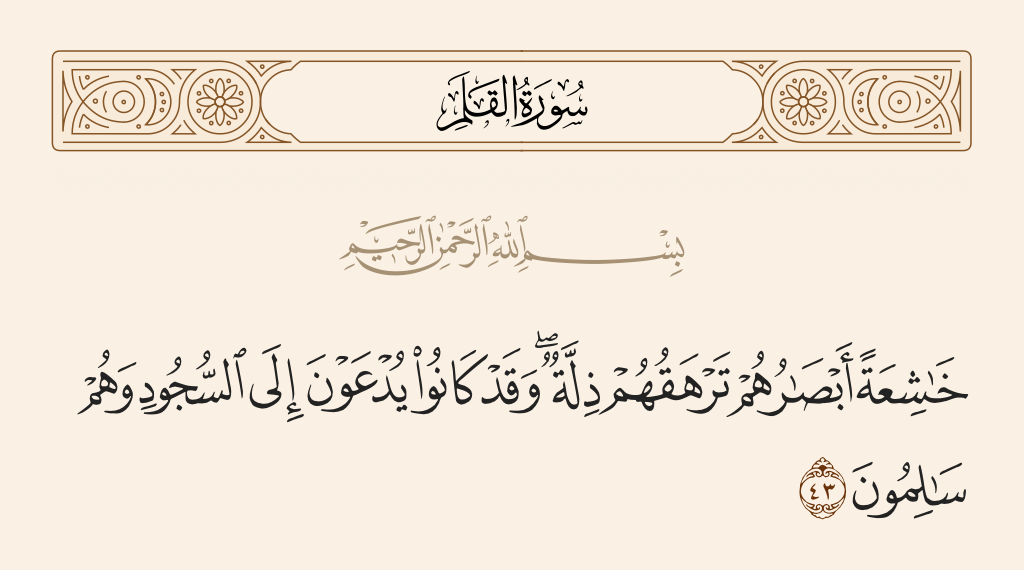 سُورَةُ القَلَمِ
بِسْمِ ٱللَّهِ ٱلرَّحْمَٰنِ ٱلرَّحِيمِ
خَٰشِعَةً أَبْصَٰرُهُمْ تَرْهَقُهُمْ ذِلَّةٌ ۖ وَقَدْ كَانُوا۟ يُدْعَوْنَ إِلَى ٱلسُّجُودِ وَهُمْ
سَٰلِمُونَ ٤٣